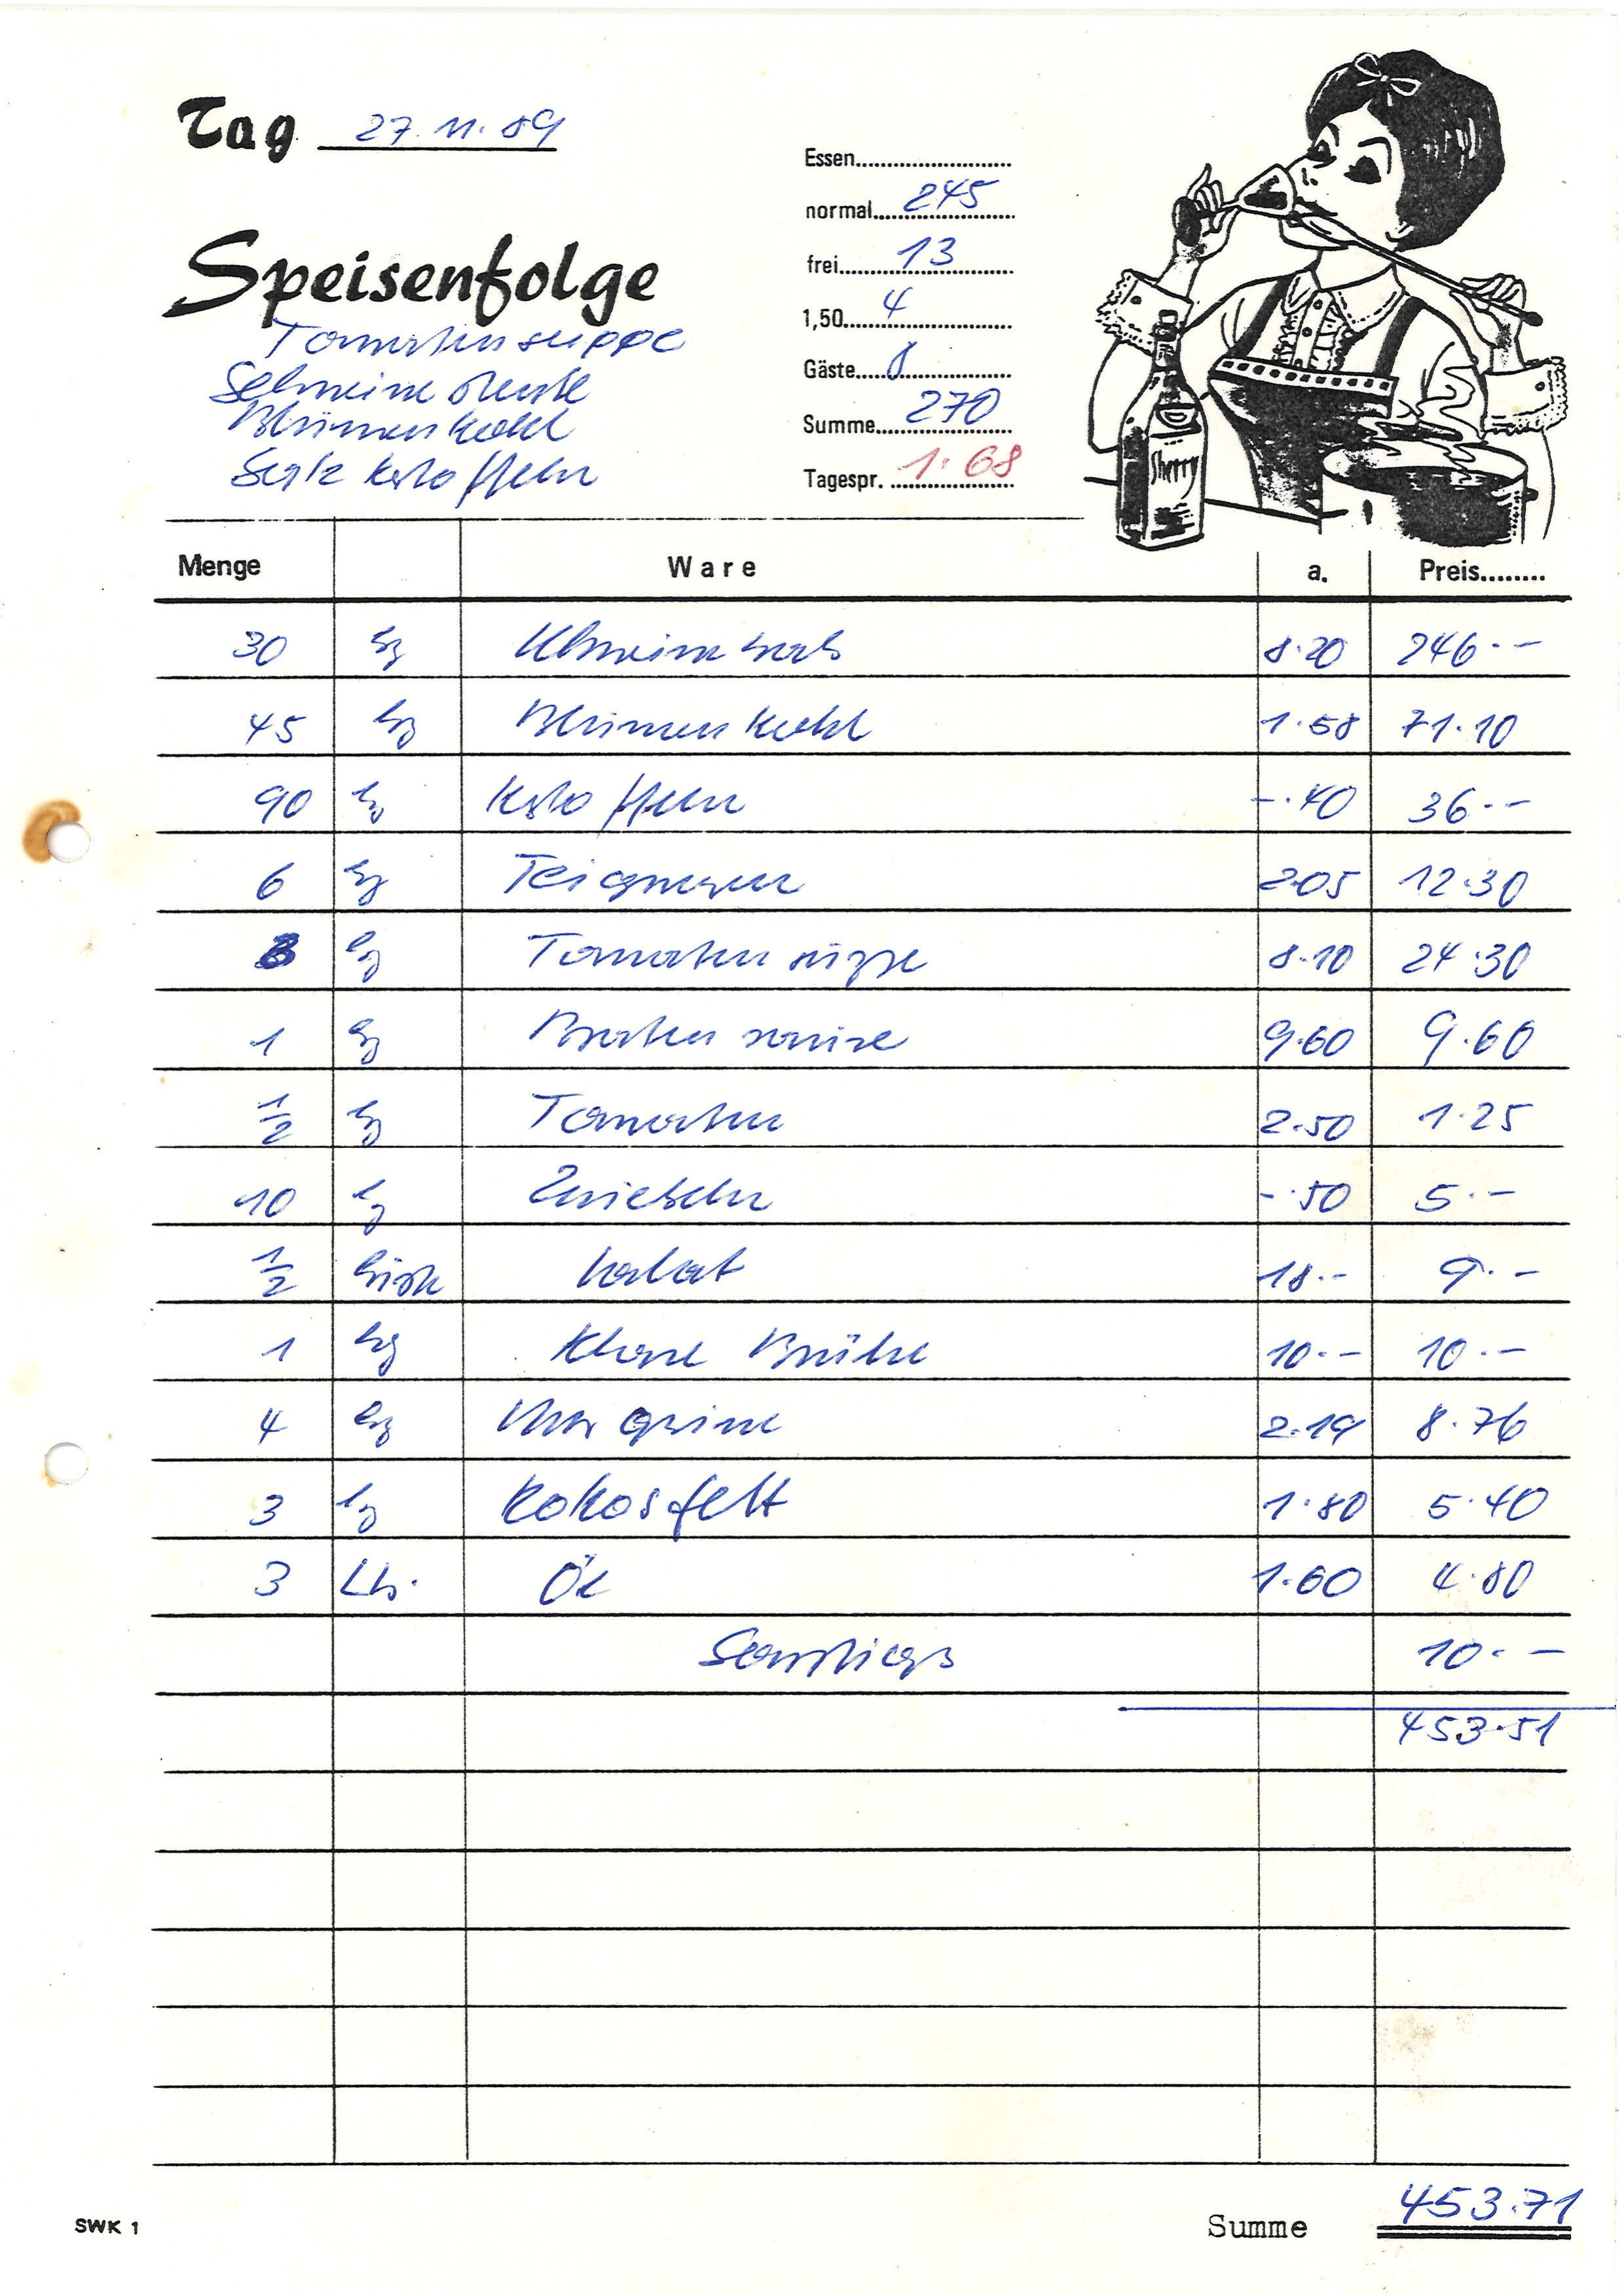 Tag 27.11.89
Speisenfolge
Tomatensuppe
Schweinesteak
Blumenkohl
Salzkartoffeln
Essen
normal 245
frei 13
1,50 4
Gäste 8
Summe 270
Tagespr. 1.68
Sherry
Menge Ware a. Preis
30 kg 8.20 246.-
45 kg Blumenkohl 1.58 71.10
90 kg Kartoffeln -.40 36.-
6 kg Teigwaren 2.05 12.30
3 kg Tomatensuppe 8.10 24.30
1 kg Bratensauce 9.60 9.60
1/2 kg Tomaten 2.50 1.25
10 kg Zwiebeln -.50 5.-
1/2 Kiste Salat 18.- 9.-
1 kg Klare Brühe 10.- 10.-
4 kg Margarine 2.19 8.76
3 kg Kokosfett 1.80 5.40
3 Ltr. Öl 1.60 4.80
Sonstiges 10.-
453.51
SWK 1
Summe 453.71